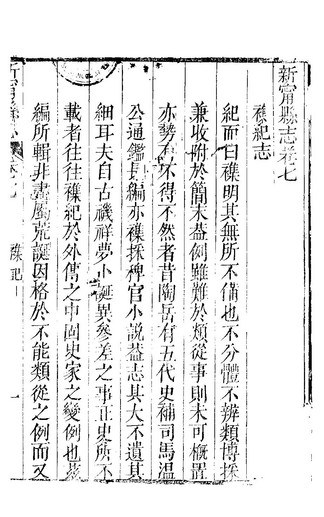 新甯縣志卷七
襍紀志
紀而曰襍明其無所不備也不分體不辨類博採
兼收附於簡末葢例雖難於類從事則未可槪置
亦勢有不得不然者昔陶岳有五代史補司馬溫
公通鑑長編亦襍採稗官小說葢志其大不遺其
細耳夫自古禨祥夢小誕異參差之事正史所不
載者往往襍紀於外傳之中固史家之變例也茲
編所輯非盡屬荒誕因格於不能類從之例而又
襍記
一